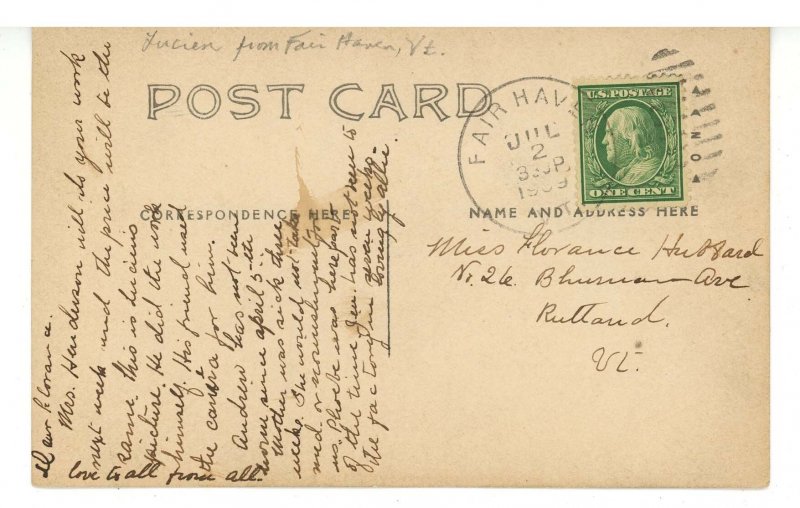 Lucien from Fair Haven, Vt.
POST CARD
FAIR HAVE
JUL
2
1909
U.S. POSTAGE
ONE CENT
CORRESPONDENCE HERE
NAME AND ADDRESS HERE
Miss Florance Hubbard
No. 26. Ave
Rutland.
Vt.
Dear Florance.
Mrs. Henderson will do your work
next week and the price will be the
same. This is Luciens
picture. He did the work
himself. His friend used
the camera for him.
Andrew has not been
home since april 5th
Mother was sick three
weeks. She would not take
med. or nourishment for
us. Phoebe was here part
of the time. Jen. has not been to
the factory in seven weeks.
Lovingly allie.
love to all from all.